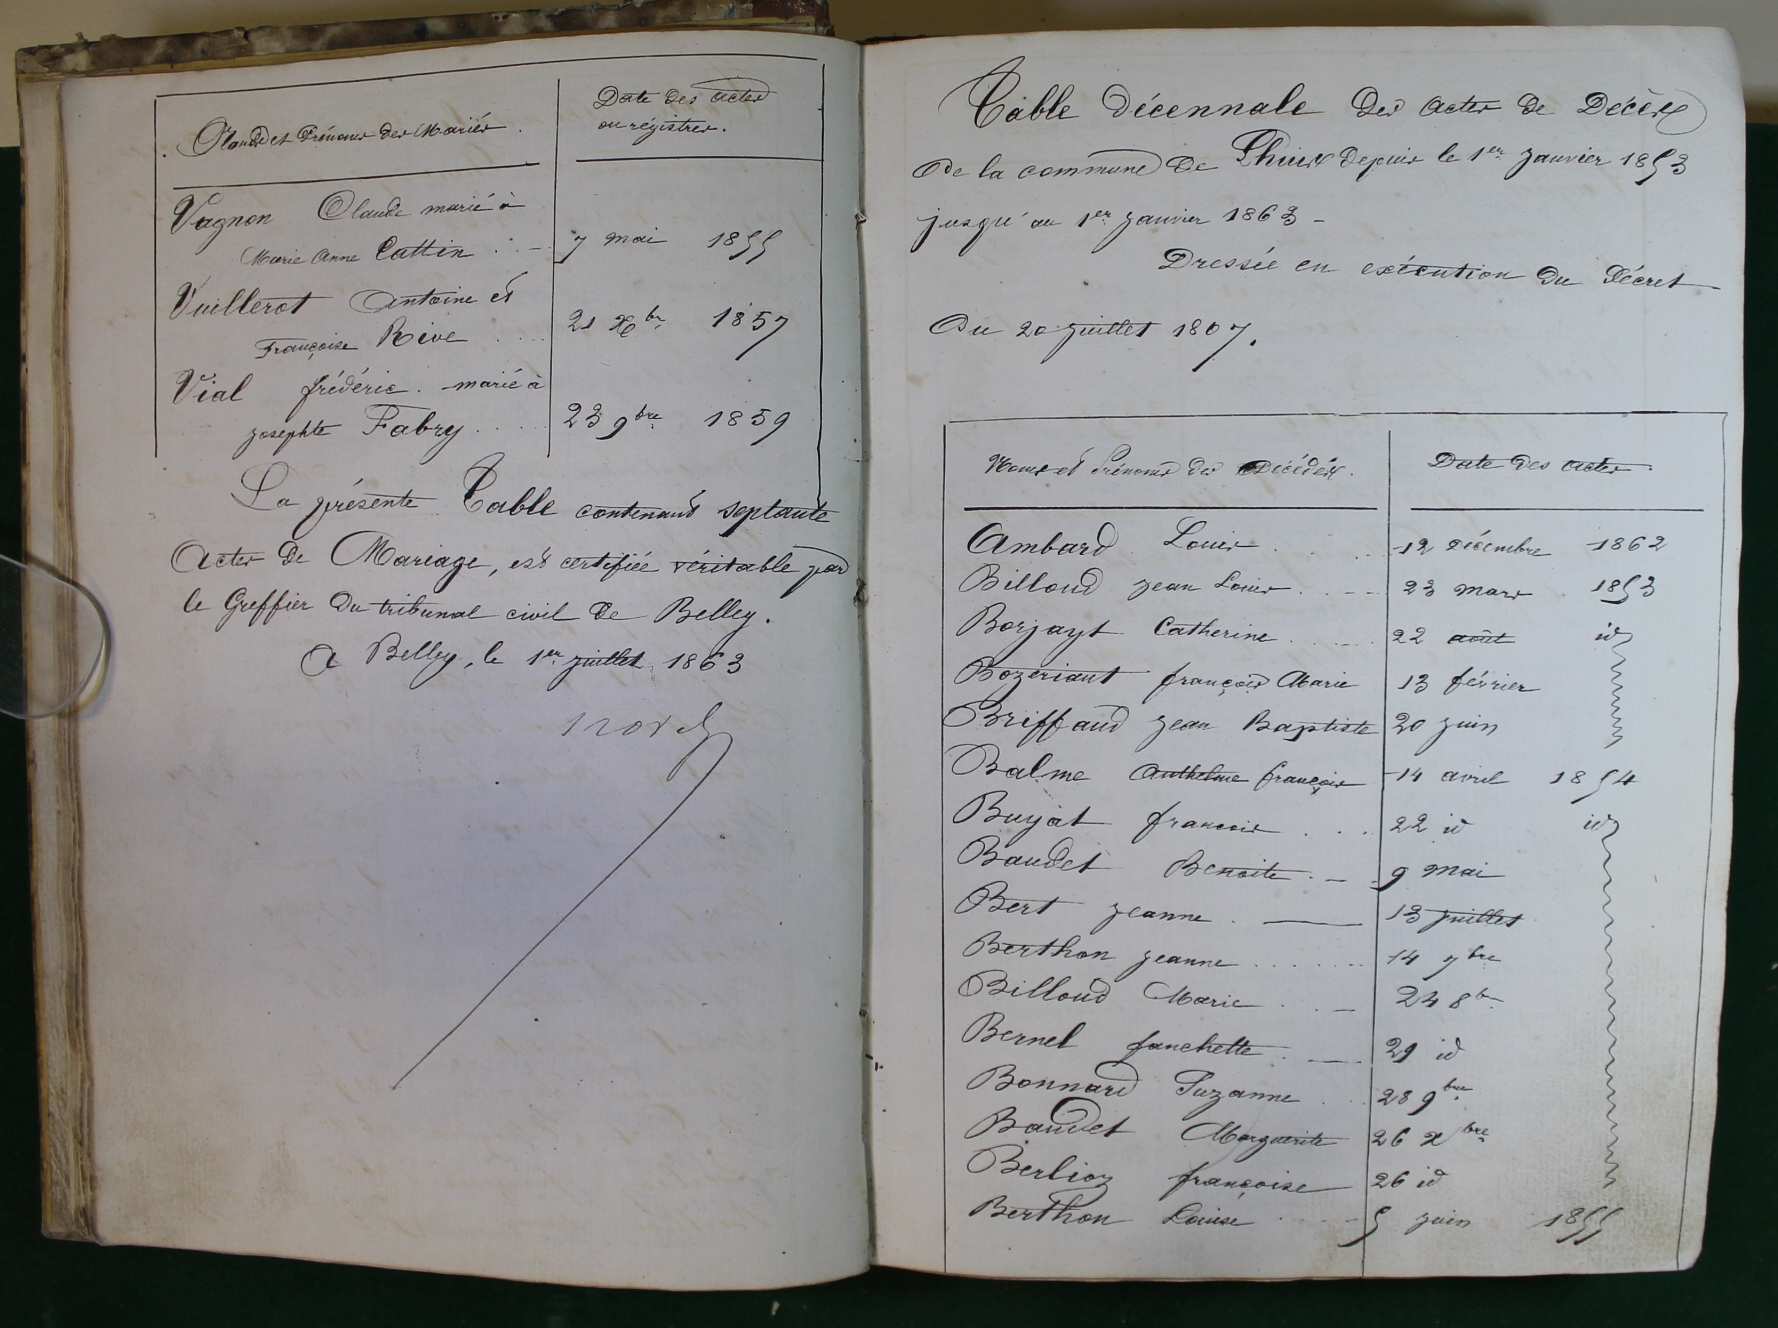 Noms et Prénoms des Mariés.
Date des actes
ou régistres.
Vagnon Claude marié à
Marie Anne Cattin 7 mai 1855
Vuillerot Antoine et
Françoise Rive 21 Xbre 1857
Vial frédéric marié à
josephte Fabry 23 9bre 1859
La présente Table contenant septante
Actes de Mariage, est certifiée véritable par
le Greffier du tribunal civil de Belley.
A Belley, le 1er juillet 1863
Table décennale des actes de Décès
de la commune de depuis le 1er janvier 1853
jusqu'au 1er janvier 1863 -
Dressée en exécution du Décret
du 20 juillet 1807.
Noms et Prénoms des Décédés. Date des actes
Ambard Louis 12 décembre 1862
Billoud jean Louis 23 mars 1853
Borjayt Catherine 22 août id
Bozeriant françois Marie 13 février
Briffaud jean Baptiste 20 juin
Balme Anthelme françois 14 avril 1854
Buyat francois 22 id id
Baudet Benoite 9 mai
Bert jeanne 13 juillet
Berthon jeanne 14 7bre
Billoud Marie 24 8bre
Bernel fanchette 29 id
Bonnard Suzanne 28 9bre
Baudet Marguerite 26 Xbre
Berlioz françoise 26 id
Berthon Louise 5 juin 1855